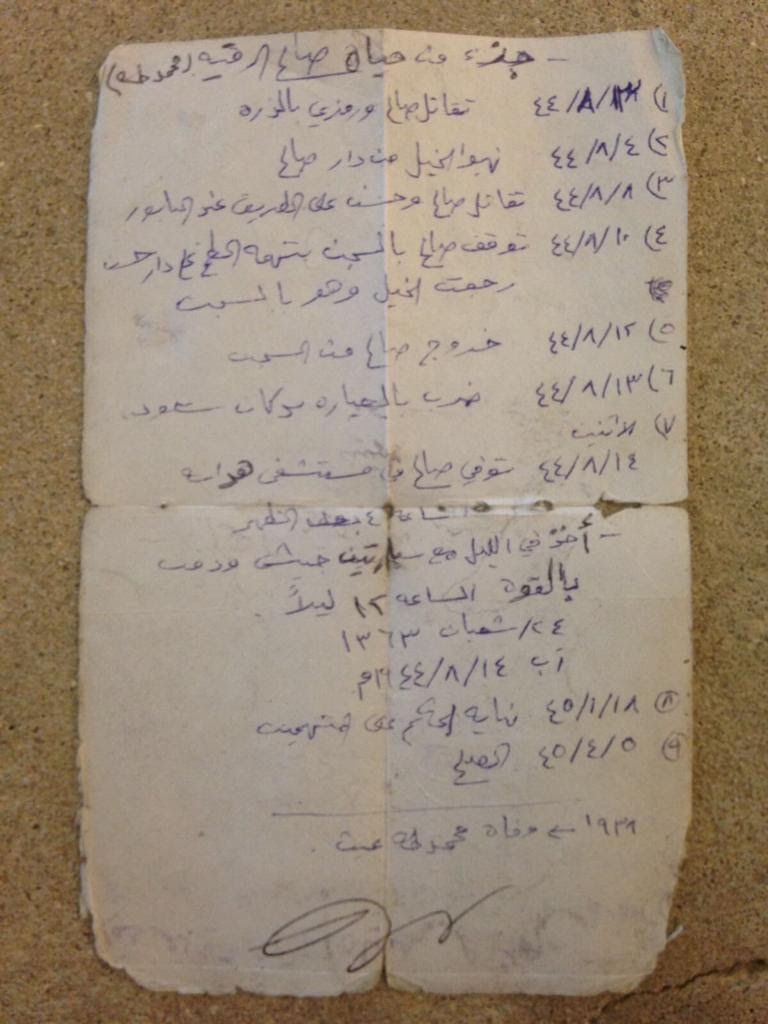 - جزء من حياة صالح الرقيه (محمد طه)
١) ٤٤/٨/٣ تقاتل صالح ورمزي بالذره
٢) ٤٤/٨/٤ نهبوا الخيل من دار صالح
٣) ٤٤/٨/٨ تقاتل صالح وحسن على الطريق عند البابور
٤) ٤٤/٨/١٠ توقف صالح بالسجن بتهمة الطخ على دار حسن
رجعت الخيل وهو بالسجن
٥) ٤٤/٨/١٢ خروج صالح من السجن
٦) ٤٤/٨/١٣ ضرب بالعياره سعود
٧) الاثنين
٤٤/٨/١٤ توفي صالح في مستشفى
الساعة ٤ بعد الظهر
- أخذ في الليل مع سيارتين جيش ودفن
بالقوة الساعة ١٢ ليلاً
٢٤/شعبان ١٣٦٣
آب ٤٤/٨/١٤م
٨) ٤٥/١/١٨ نهاية الحكم على المتهمين
٩) ٤٥/٤/٥ الصلح
١٩٣٨ ← وفاة محمد طه